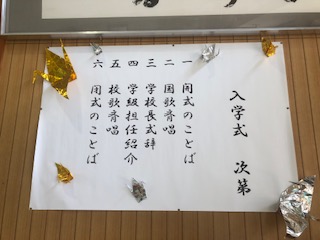 入学式 次第
一 開式のことば
二 国歌斉唱
三 学校長式辞
四 学級担任紹介
五 校歌斉唱
六 閉式のことば